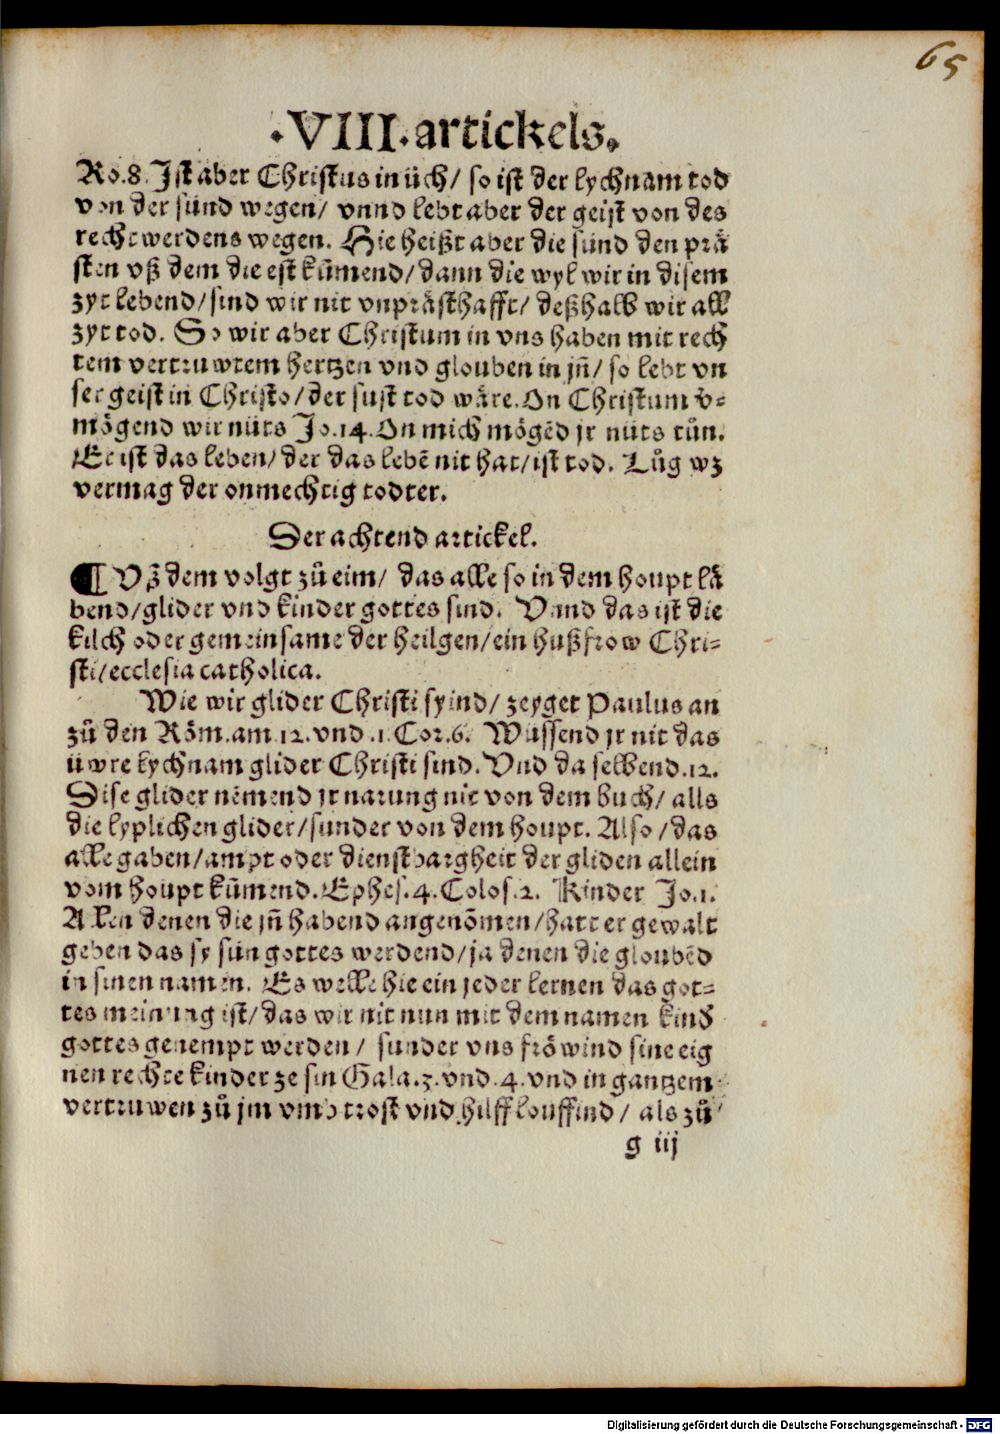 65
·VIII·artickels.
Ro.8. Ist aber Christus in üch/ so ist der lychnam tod
von der sünd wegen/ vnnd lebt aber der geist von des
rechtwerdens wegen. Hie heißt aber die sünd den prä
sten vß dem die est kūmend/ dann die wyl wir in disem
zyt lebend/ sind wir nit vnprästhafft/ deßhalb wir all
zyt tod. So wir aber Christum in vns haben mit rech
tem vertruwtem hertzen vnd glouben in jn̄/ so lebt vn
ser geist in Christo/ der sust tod wäre. On Christum v̄-
mögend wir nüts Jo.14. On mich mögēd jr nüts tůn.
Er ist das leben/ der das lebē nit hat/ ist tod. Lůg wz
vermag der onmechtig todter.
Der achtend artickel.
¶ Vß dem volgt zů eim/ das alle so in dem houpt lä
bend/ glider vnd kinder gottes sind. Vnnd das ist die
kilch oder gemeinsame der heilgen/ ein hußfrow Chri-
sti/ ecclesia catholica.
Wie wir glider Christi syind/ zeyget Paulus an
zů den Röm.am.12.vnd.1.Cor.6. Wüssend jr nit das
üwre lychnam glider Christi sind. Vnd da selbend.12.
Dise glider nēmend jr narung nit von dem buch/ alls
die lyplichen glider/ sunder von dem houpt. Also/ das
alle gaben/ ampt oder dienstbargheit der gliden allein
vom houpt kūmend. Ephes.4. Colos.2. Kinder Jo.1.
Allen denen die jn̄ habend angenōmen/ hatt er gewalt
geben das sy sün gottes werdend/ ja denen die gloubēd
in sinen namen. Es welle hie ein jeder lernen das got-
tes meinung ist/ das wir nit nun mit dem namen kind
gottes genempt werden/ sunder vns fröwind sine eig
nen rechte kinder ze sin Gala.3.vnd.4.vnd in gantzem
vertruwen zů jm vmb trost vnd hilff louffind/ als zů
g iij
Digitalisierung gefördert durch die Deutsche Forschungsgemeinschaft - DFG